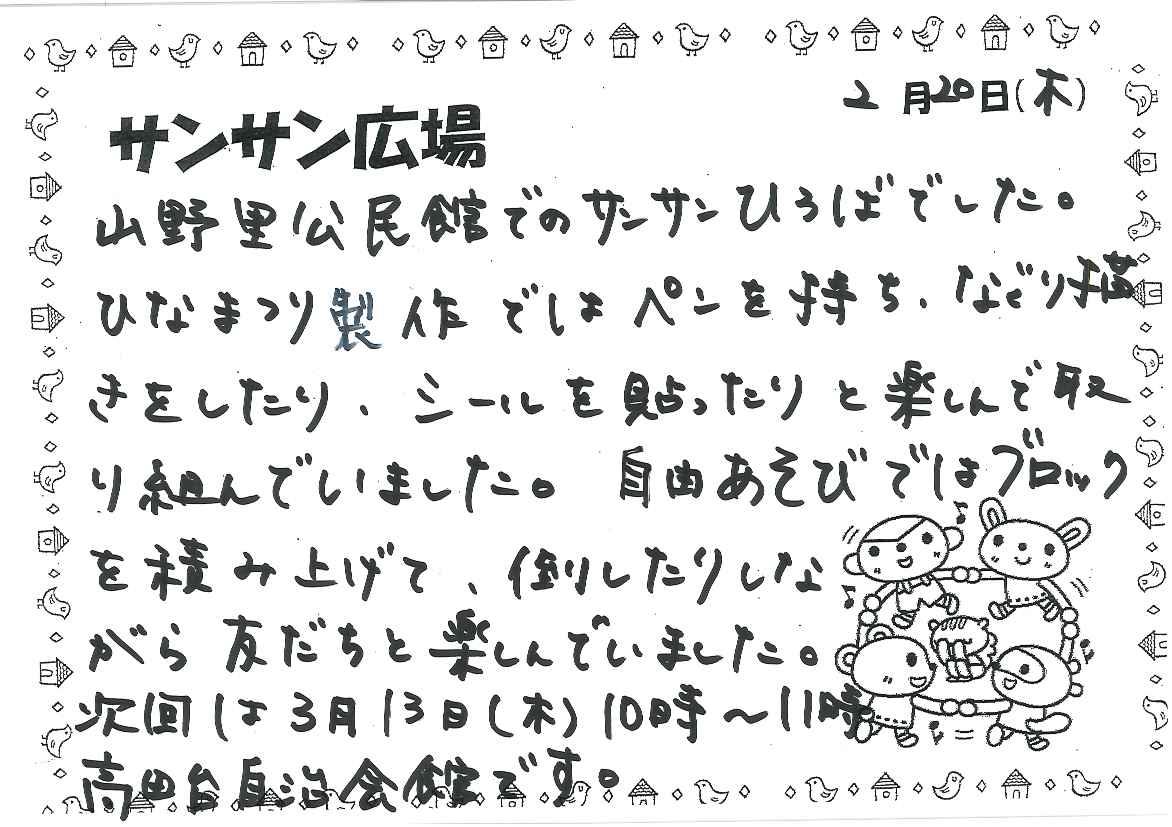 2月20日(木)
サンサン広場
山野里公民館でのサンサンひろばでした。
ひなまつり製作ではペンを持ち、なぐり描
きをしたり、シールを貼ったりと楽しんで取
り組んでいました。自由あそびではブロック
を積み上げて、倒したりしな
がら友だちと楽しんでいました。
次回は3月13日(木)10時〜11時
高田台自治会館です。